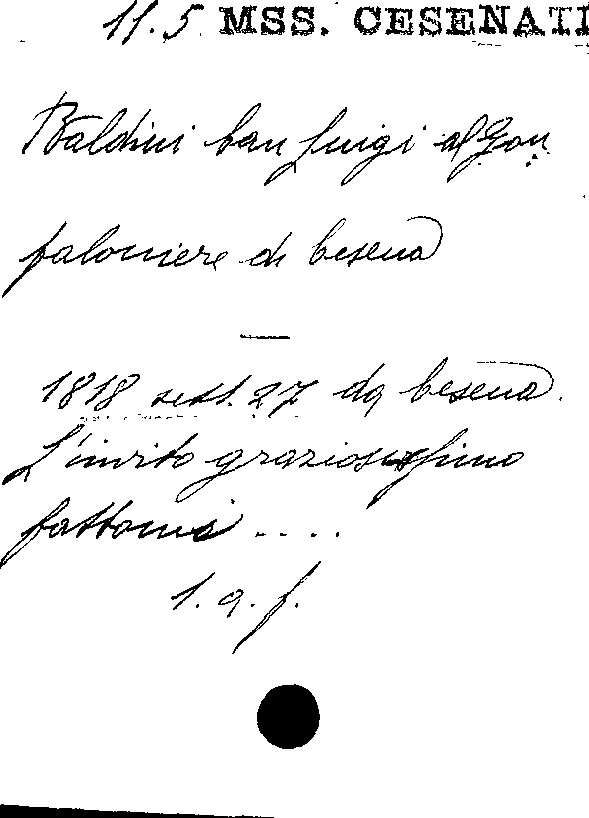 11.5 MSS. CESENATI
Baldini Can Luigi al Gon
faloniere di Cesena
—
1818 sett. 27 da Cesena.
L'invito graziosissimo
fattomi ....
1. a. f.